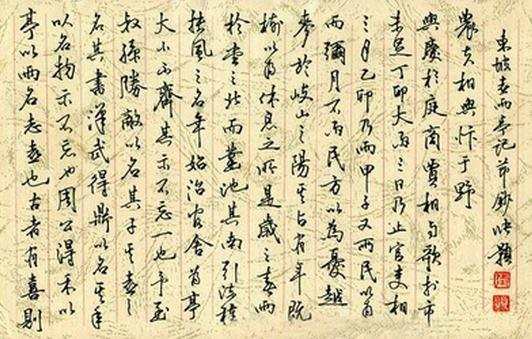 亭以雨名志喜也古者有喜則
以名物示不忘也周公得禾以
名其書漢武得鼎以名其年
叔孫勝敵以名其子其喜之
大小不齊其示不忘一也予至
扶風之名年始治官舍為亭
於堂之北而鑿池其南引流種
樹以為休息之所是歲之春雨
麥於岐山之陽其占有年既
而彌月不雨民方以為憂越
三月乙卯乃雨甲子又雨民以為
未足丁卯大雨三日乃止官吏相
與慶於庭商賈相與歌於市
農夫相與忭于野
東坡喜雨亭記節錄